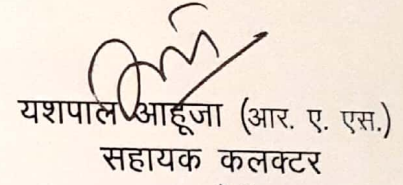 यशपाल आहूजा (आर. ए. एस.)
सहायक कलक्टर